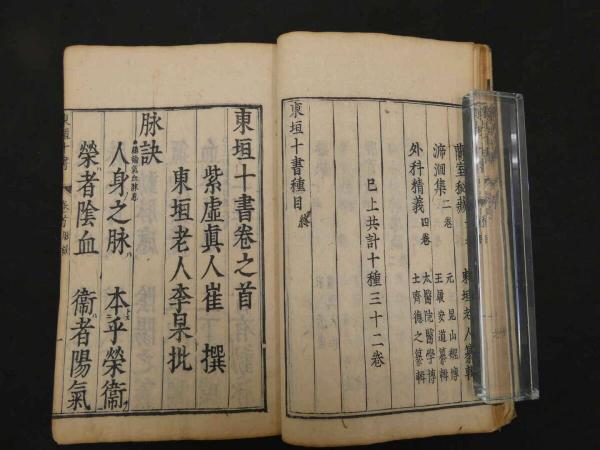 蘭室秘藏 東垣老人纂輯
元 崑山
溯洄集 二卷 王履安道纂輯
太醫院醫學博
外科精義 四卷 士齊德之纂輯
已上共計十種三十二卷
東垣十書種目終
東垣十書卷之首
紫虛眞人崔 撰
東垣老人李杲批
脉訣
●總論氣血脉息
人身之脉 本乎榮衞
榮者陰血 衞者陽氣
東垣十書